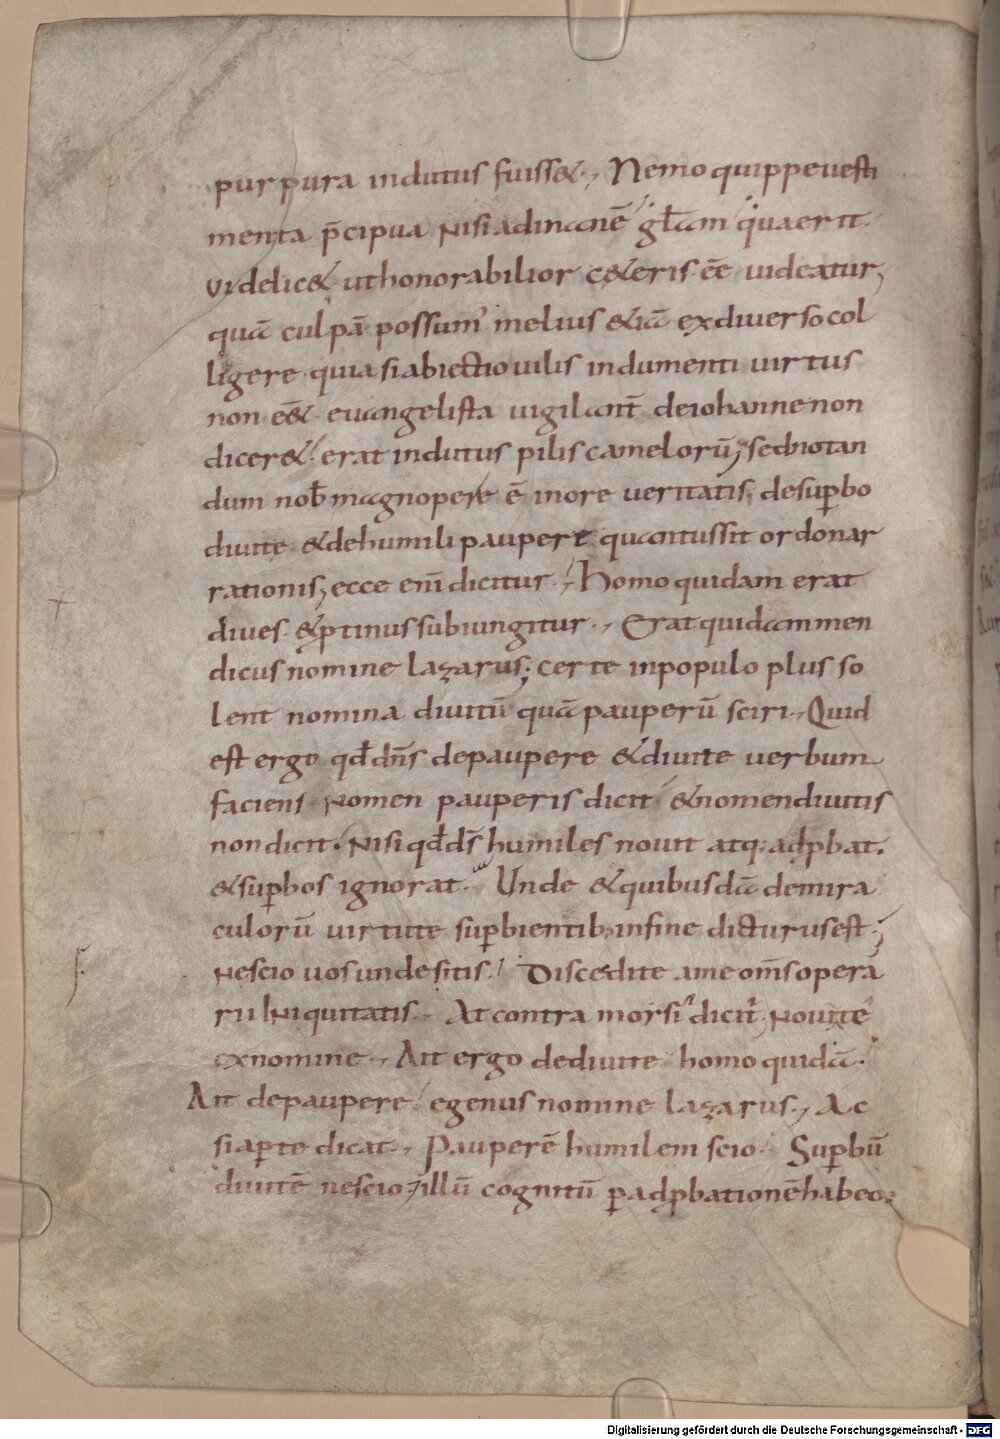 purpura indutus fuiss&., Nemo quippe vesti
menta p̄cipua Nisi ad inanē gl̄am quaerit.
videlic& ut honorabilior c&eris ēe videatur,
quā culpā possum' melius &iā ex diverso col
ligere. quia si abiectio vilis indumenti virtus
non ēē& euangelista vigilant̄ de iohanne non
dicer&. erat indutus pilis camelorū; sed notan
dum nob̄ magnopere ē in ore veritatis. de supbo
divite &de humili paupere quantus sit ordo nar
rationis; ecce eni̅ dicitur., Homo quidam erat
dives. &ptinus subiungitur., Erat quidam men
dicus nomine lazarus; certe in populo plus so
lent nomina divitū quā pauperū sciri., Quid
est ergo qd̄ dn̄s de paupere &divite verbum
faciens. Nomen pauperis dicit &nomen divitis
non dicit. Nisi qd̄ ds̄ humiles novit atq; adpbat.
&supbos ignorat. Unde &quibusdā de mira
culorū virtute supbientib; in fine dicturus est;
Nescio vos unde sitis. Discedite a me om̄s opera
rii iniquitatis., At contra morsi dicit̄. Novi te
ex nomine., Ait ergo de divite homo quidā.
Ait de paupere. egenus nomine lazarus., Ac
si apte dicat., Pauperē humilem scio. Supbū
divitē nescio; illū cognitū p adpbationē habeo.
Digitalisierung gefördert durch die Deutsche Forschungsgemeinschaft - DFG